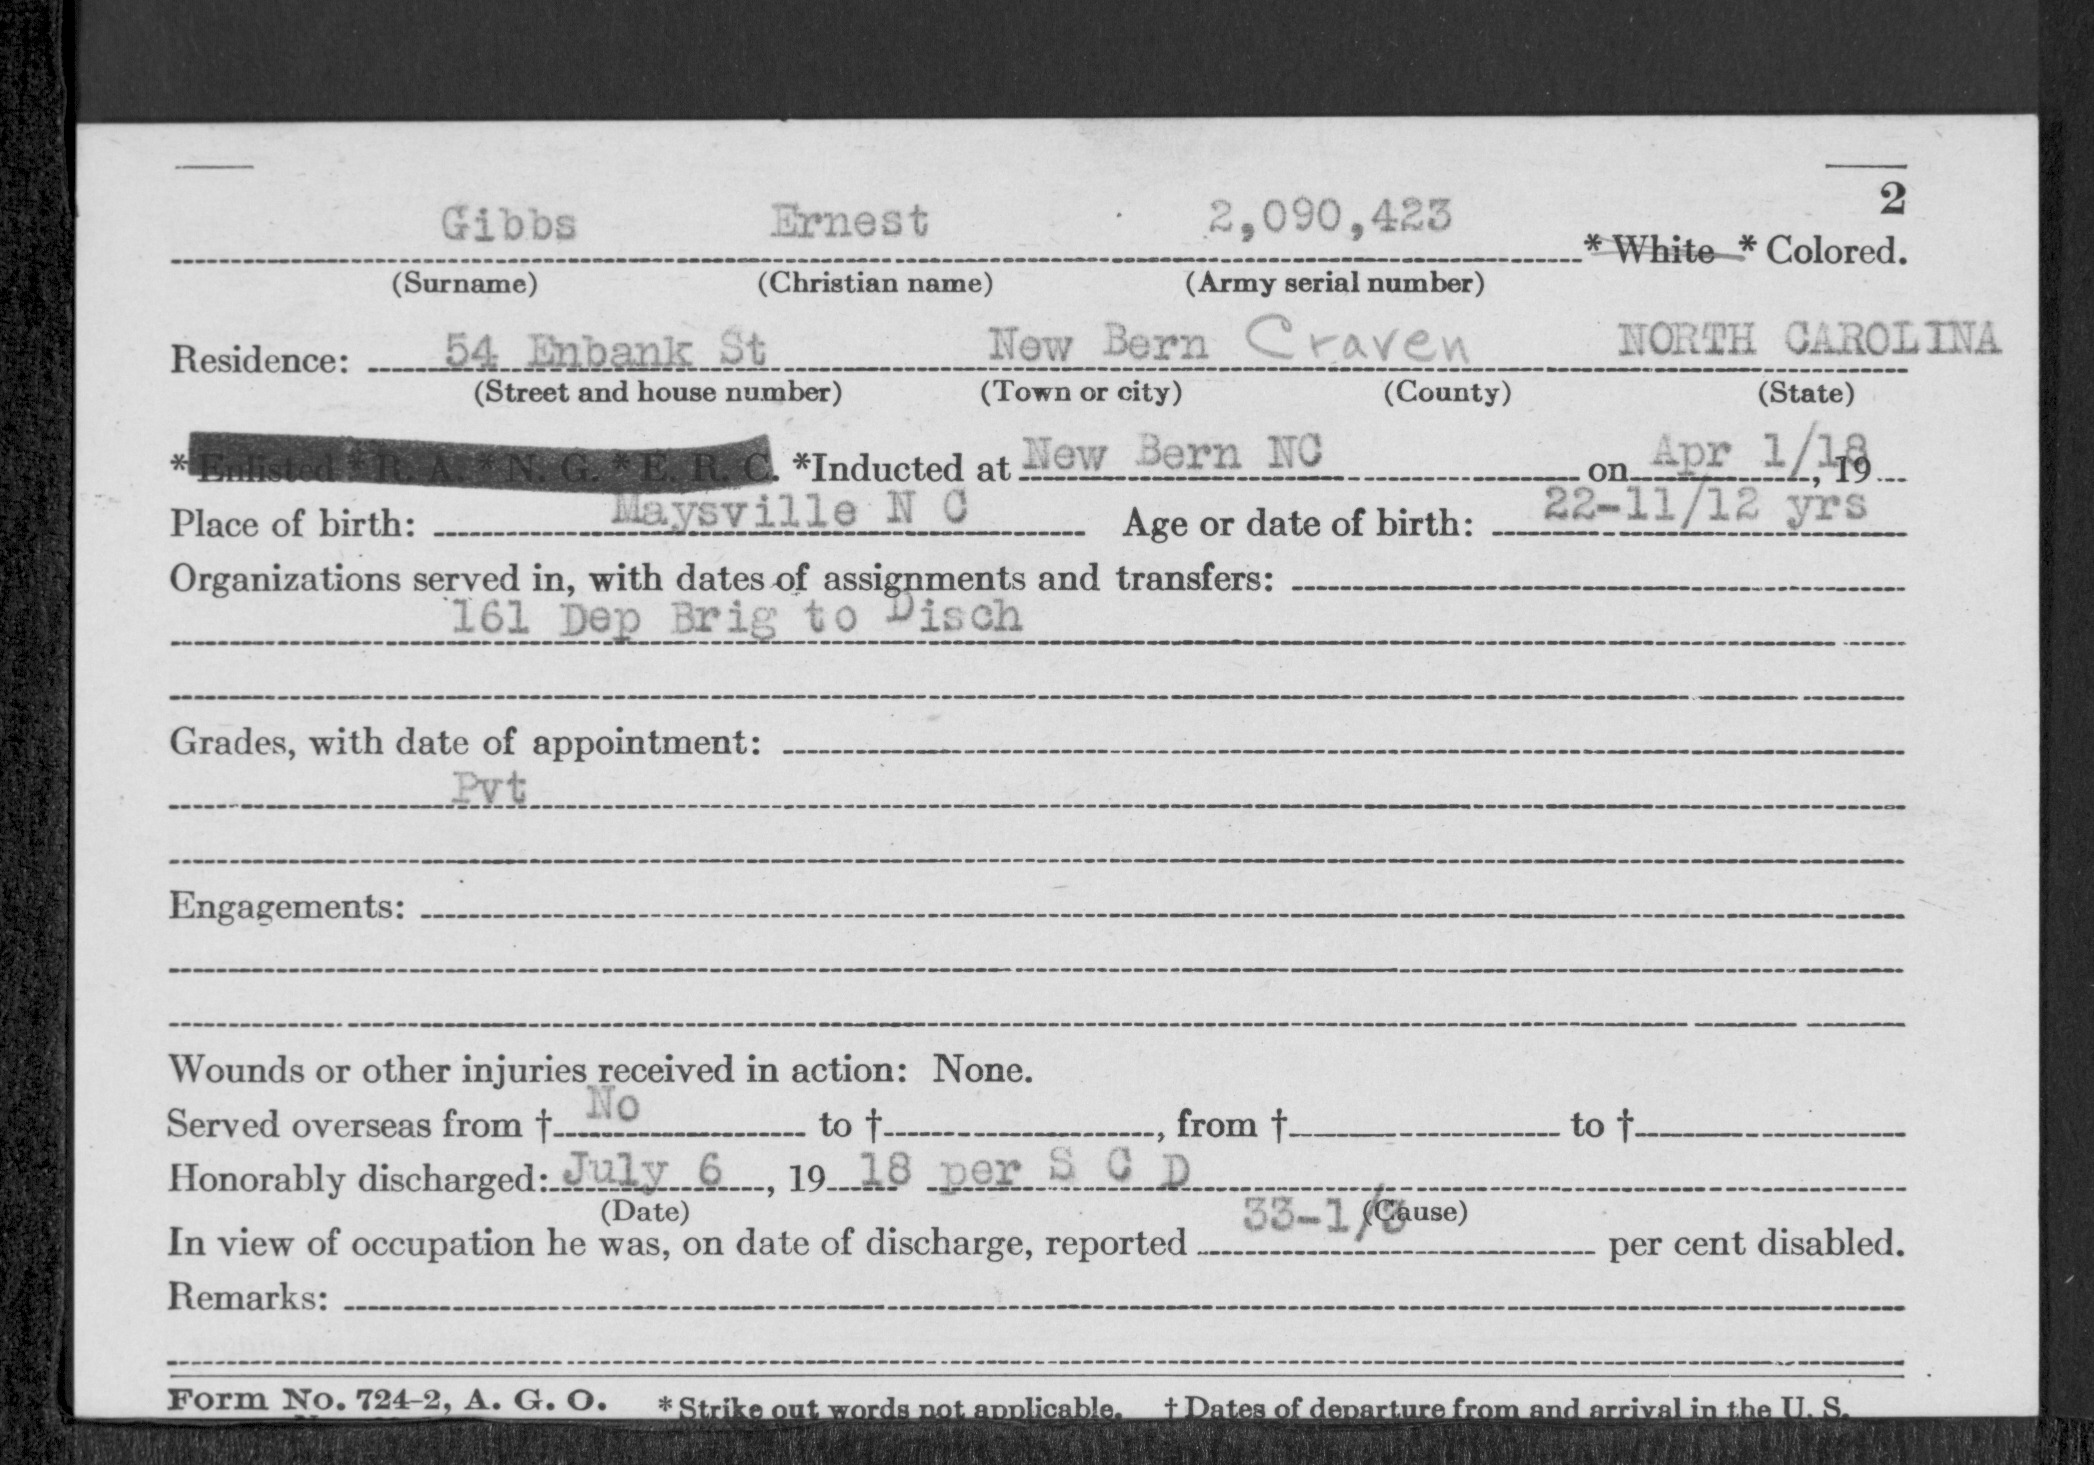 2
Gibbs Ernest 2,090,423 * White * Colored.
(Surname) (Christian name) (Army serial number)
Residence: 54 Enbank St New Bern Craven NORTH CAROLINA
(Street and house number) (Town or city) (County) (State)
* Enlisted * R. A. * N. G. * E. R. C. *Inducted at New Bern NC on Apr 1/18, 19
Place of birth: Maysville N C Age or date of birth: 22-11/12 yrs
Organizations served in, with dates of assignments and transfers:
161 Dep Brig to Disch
Grades, with date of appointment:
Pvt
Engagements:
Wounds or other injuries received in action: None.
Served overseas from † No to †, from † to †
Honorably discharged: July 6, 19 18 per S C D
(Date) (Cause)
In view of occupation he was, on date of discharge, reported 33-1/3 per cent disabled.
Remarks:
Form No. 724-2, A. G. O. * Strike out words not applicable. † Dates of departure from and arrival in the U. S.